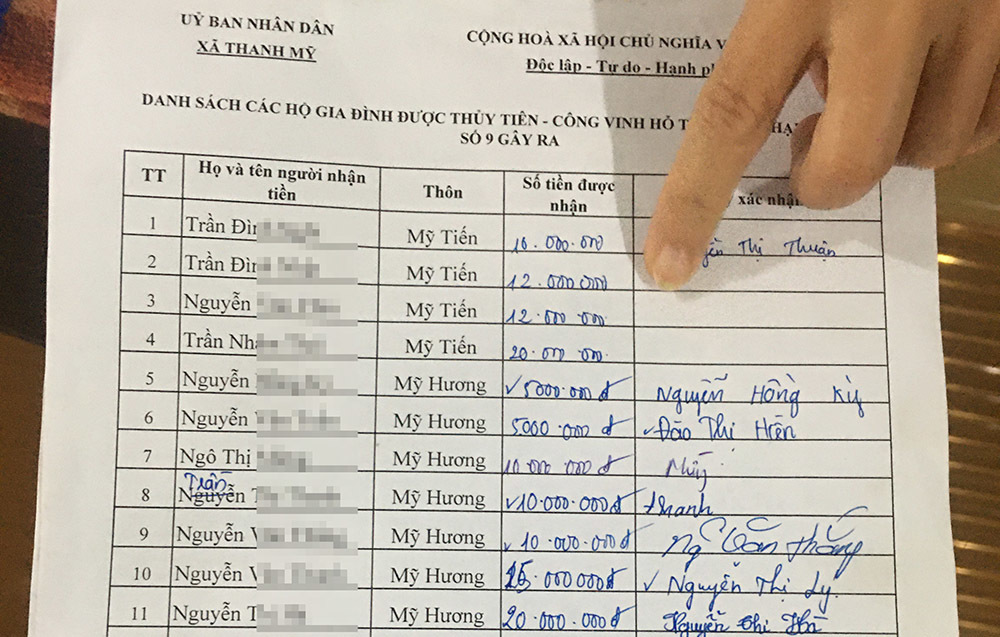 UỶ BAN NHÂN DÂN
XÃ THANH MỸ
CỘNG HOÀ XÃ HỘI CHỦ NGHĨA V
Độc lập - Tự do - Hạnh ph
DANH SÁCH CÁC HỘ GIA ĐÌNH ĐƯỢC THỦY TIÊN - CÔNG VINH HỎ T HẠ
SỐ 9 GÂY RA
TT Họ và tên người nhận tiền Thôn Số tiền được nhận xác nhận
1 Trần Đìn Mỹ Tiến 10.000.000 Thị Thuận
2 Trần Đìn Mỹ Tiến 12.000.000
3 Nguyễn Mỹ Tiến 12.000.000
4 Trần Nhâ Mỹ Tiến 20.000.000
5 Nguyễn Mỹ Hương 5000.000đ Nguyễn Hồng Kỳ
6 Nguyễn Mỹ Hương 5000.000đ Đào Thị Hiền
7 Ngô Thị Mỹ Hương 10.000.000đ
8 Trần Nguyễn T Mỹ Hương 10.000.000đ thanh
9 Nguyễn V Mỹ Hương 10.000.000đ Ng Văn thắng
10 Nguyễn V Mỹ Hương 25.000000đ Nguyễn Thị Lý
11 Nguyễn T Mỹ Hương 20.000.000đ Nguyễn thị Hà